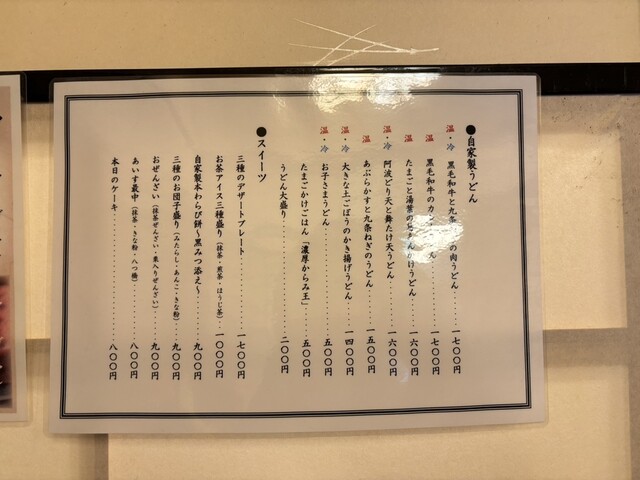 ●自家製うどん
温・冷 黒毛和牛と九条の肉うどん・・・・・一七〇〇円
温 黒毛和牛のカうどん・・・・・一七〇〇円
温 たまごと湯葉のあんかけうどん・・・・・一六〇〇円
温・冷 阿波どり天と舞たけ天うどん・・・・・一六〇〇円
温 あぶらかすと九条ねぎのうどん・・・・・一五〇〇円
温・冷 大きな土ごぼうのかき揚げうどん・・・・・一四〇〇円
温・冷 お子さまうどん・・・・・五〇〇円
たまごかけごはん「濃厚からみ王」・・・・・五〇〇円
うどん大盛り・・・・・二〇〇円
●スイーツ
三種のデザートプレート・・・・・一七〇〇円
お茶アイス三種盛り（抹茶・煎茶・ほうじ茶）・・・・・一〇〇〇円
自家製本わらび餅～黒みつ添え～・・・・・九〇〇円
三種のお団子盛り（みたらし・あんこ・きな粉）・・・・・九〇〇円
おぜんざい（抹茶ぜんざい・栗入りぜんざい）・・・・・九〇〇円
あいす最中（抹茶・きな粉・八つ橋）・・・・・八〇〇円
本日のケーキ・・・・・八〇〇円